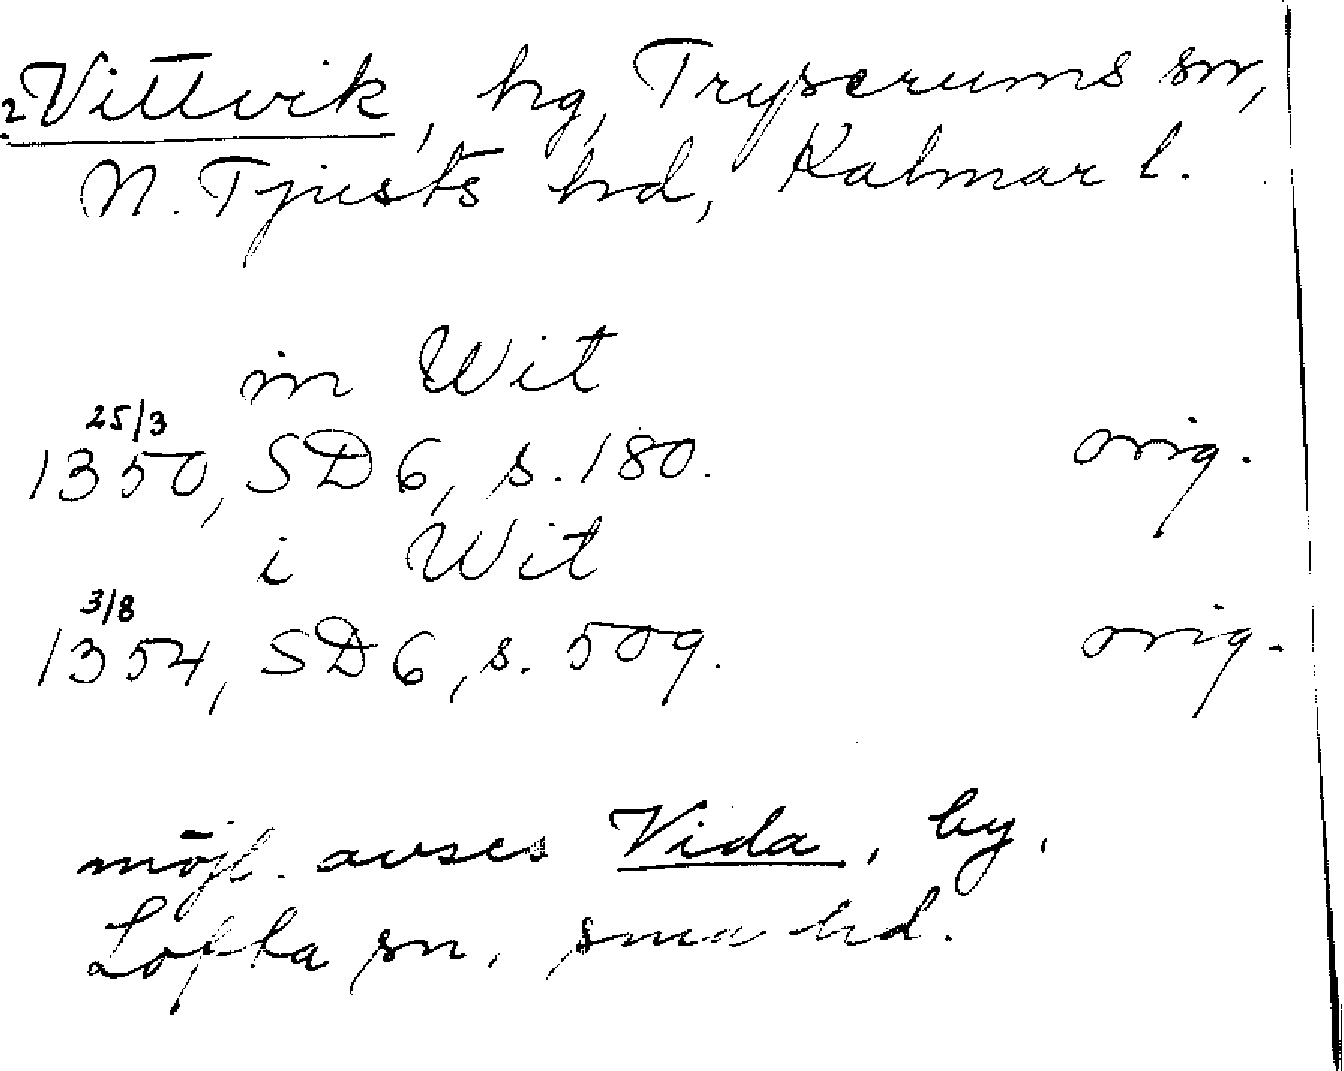 ?Vittvik, hg, Tryserums sn,
N. Tjusts hd, Kalmar l.
in Wit
25/3
1350, SD 6, s. 180. orig.
i Wit
3/8
1354, SD 6, s. 509. orig.
möjl. avses Vida, by,
Lofta sn, sma hd.